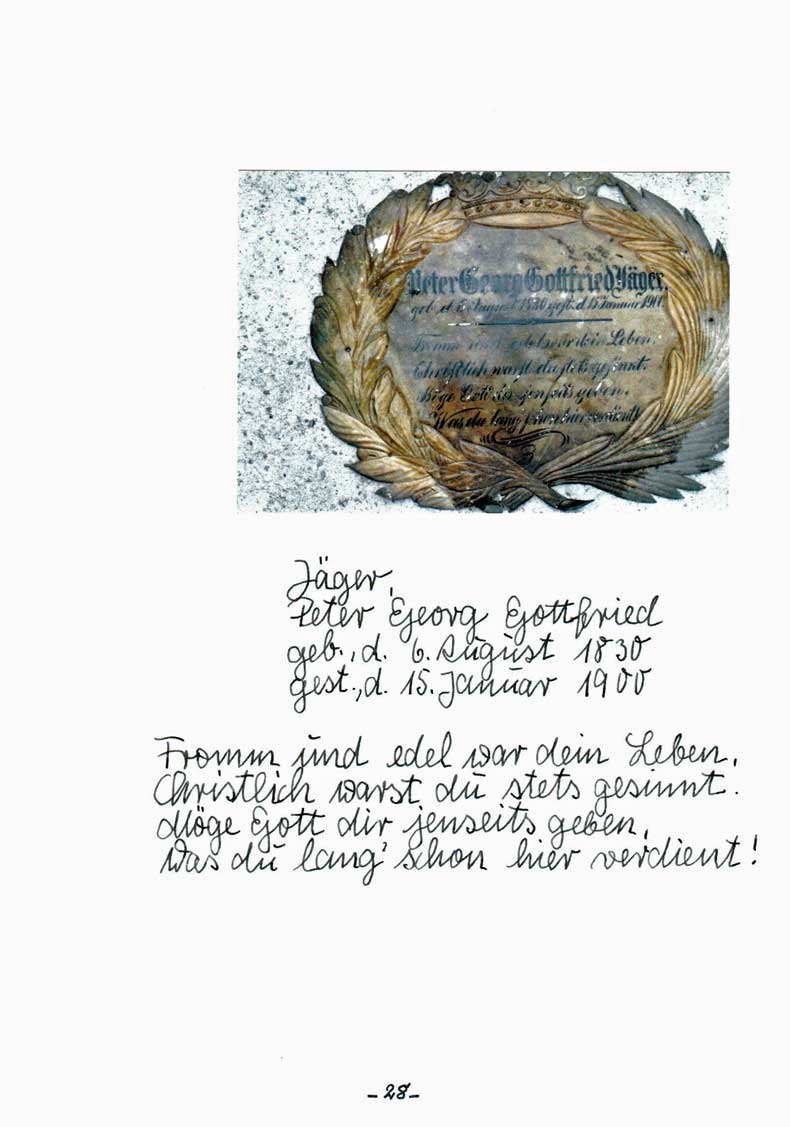 Peter Georg Gottfried Jäger.
geb. d. 6. August 1830 gest. d. 15. Januar 1900
Fromm und edel war dein Leben.
Christlich warst du stets gesinnt.
Möge Gott dir jenseits geben,
Was du lang schon hier verdient!
Jäger,
Peter Georg Gottfried
geb., d. 6. August 1830
gest., d. 15. Januar 1900
Fromm und edel war dein Leben,
Christlich warst du stets gesinnt.
Möge Gott dir jenseits geben,
Was du lang' schon hier verdient!
-28-